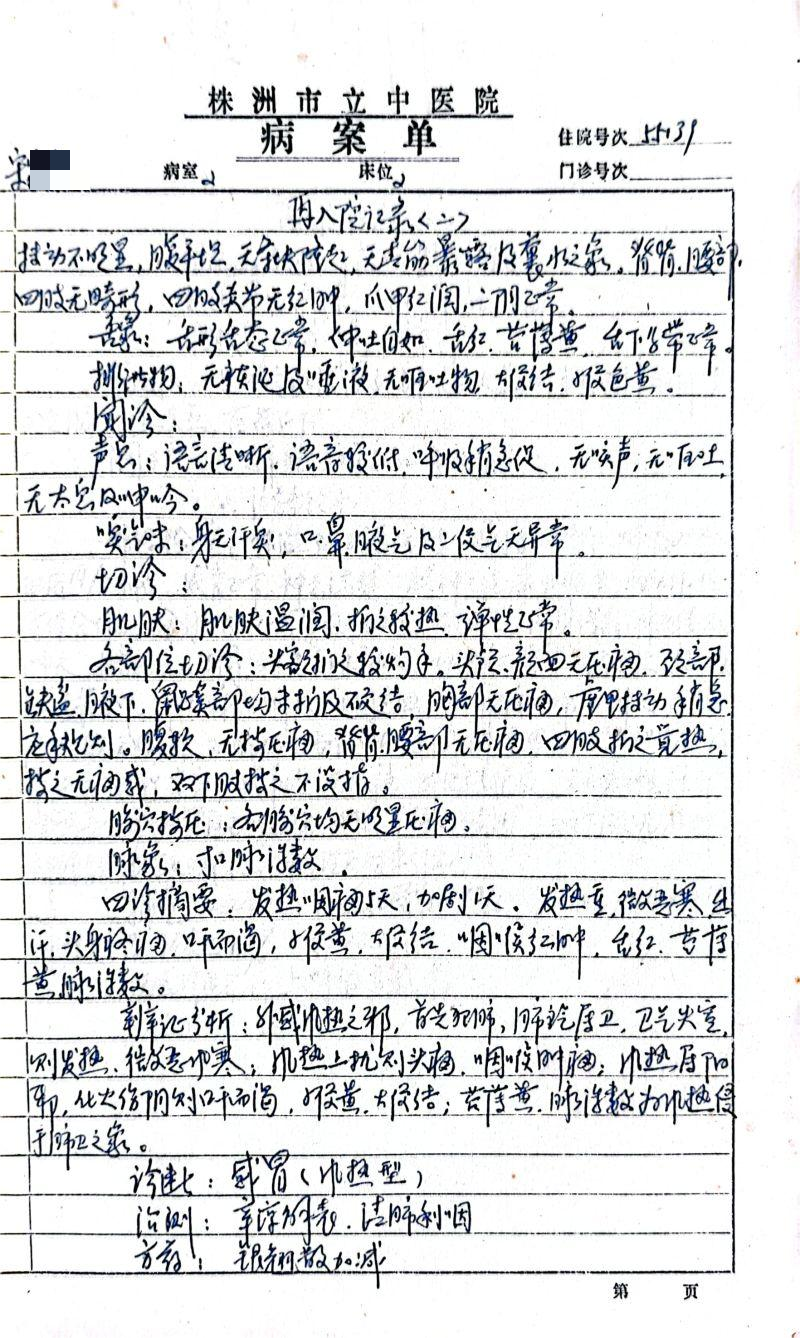 株洲市立中医院
病案单
住院号次 55139
宋 病室2 床位2 门诊号次
再入院记录<二>
搏动不明显,腹平坦,无余块隆起,无青筋暴露及囊状之象。脊背、腰部、
四肢无畸形,四肢关节无红肿,爪甲红润,二阴正常。
舌象:舌形舌态正常,伸吐自如、舌红、苔薄黄、舌下络带正常。
排泄物:无痰涎及唾液、无呕吐物、大便结、小便色黄。
闻诊:
声息:语言清晰、语音较低,呼吸稍急促,无咳声,无呕吐,
无太息及呻吟。
嗅气味:身无汗臭,口、鼻、腋气及二便气无异常。
切诊:
肌肤:肌肤温润、扪之较热、弹性正常。
各部位切诊:头额扪之较灼手。头颅、颜面无压痛,颈部、
缺盆、腋下、鼠蹊部均未扪及硬结,胸部无压痛,虚里搏动稍急
应手规则。腹软,无按压痛,脊背、腰部无压痛,四肢扪之觉热,
按之无痛感,双下肢按之不没指。
腧穴按压:各腧穴均无明显压痛。
脉象:寸口脉浮数。
四诊摘要:发热咽痛5天,加剧1天。发热重,微恶寒、出
汗,头身疼痛、口干而渴,小便黄、大便结,咽喉红肿,舌红、苔薄
黄,脉浮数。
辨证分析:外感风热之邪,首先犯肺,肺先居卫,卫气失宣,
则发热、微恶风寒;风热上扰则头痛、咽喉肿痛;风热居阳
邪,化火伤阴则口干而渴,小便黄、大便结;苔薄黄、脉浮数为风热侵
于肺卫之象。
诊断:感冒(风热型)
治则:辛凉解表、清肺利咽
方药:银翘散加减
第 页